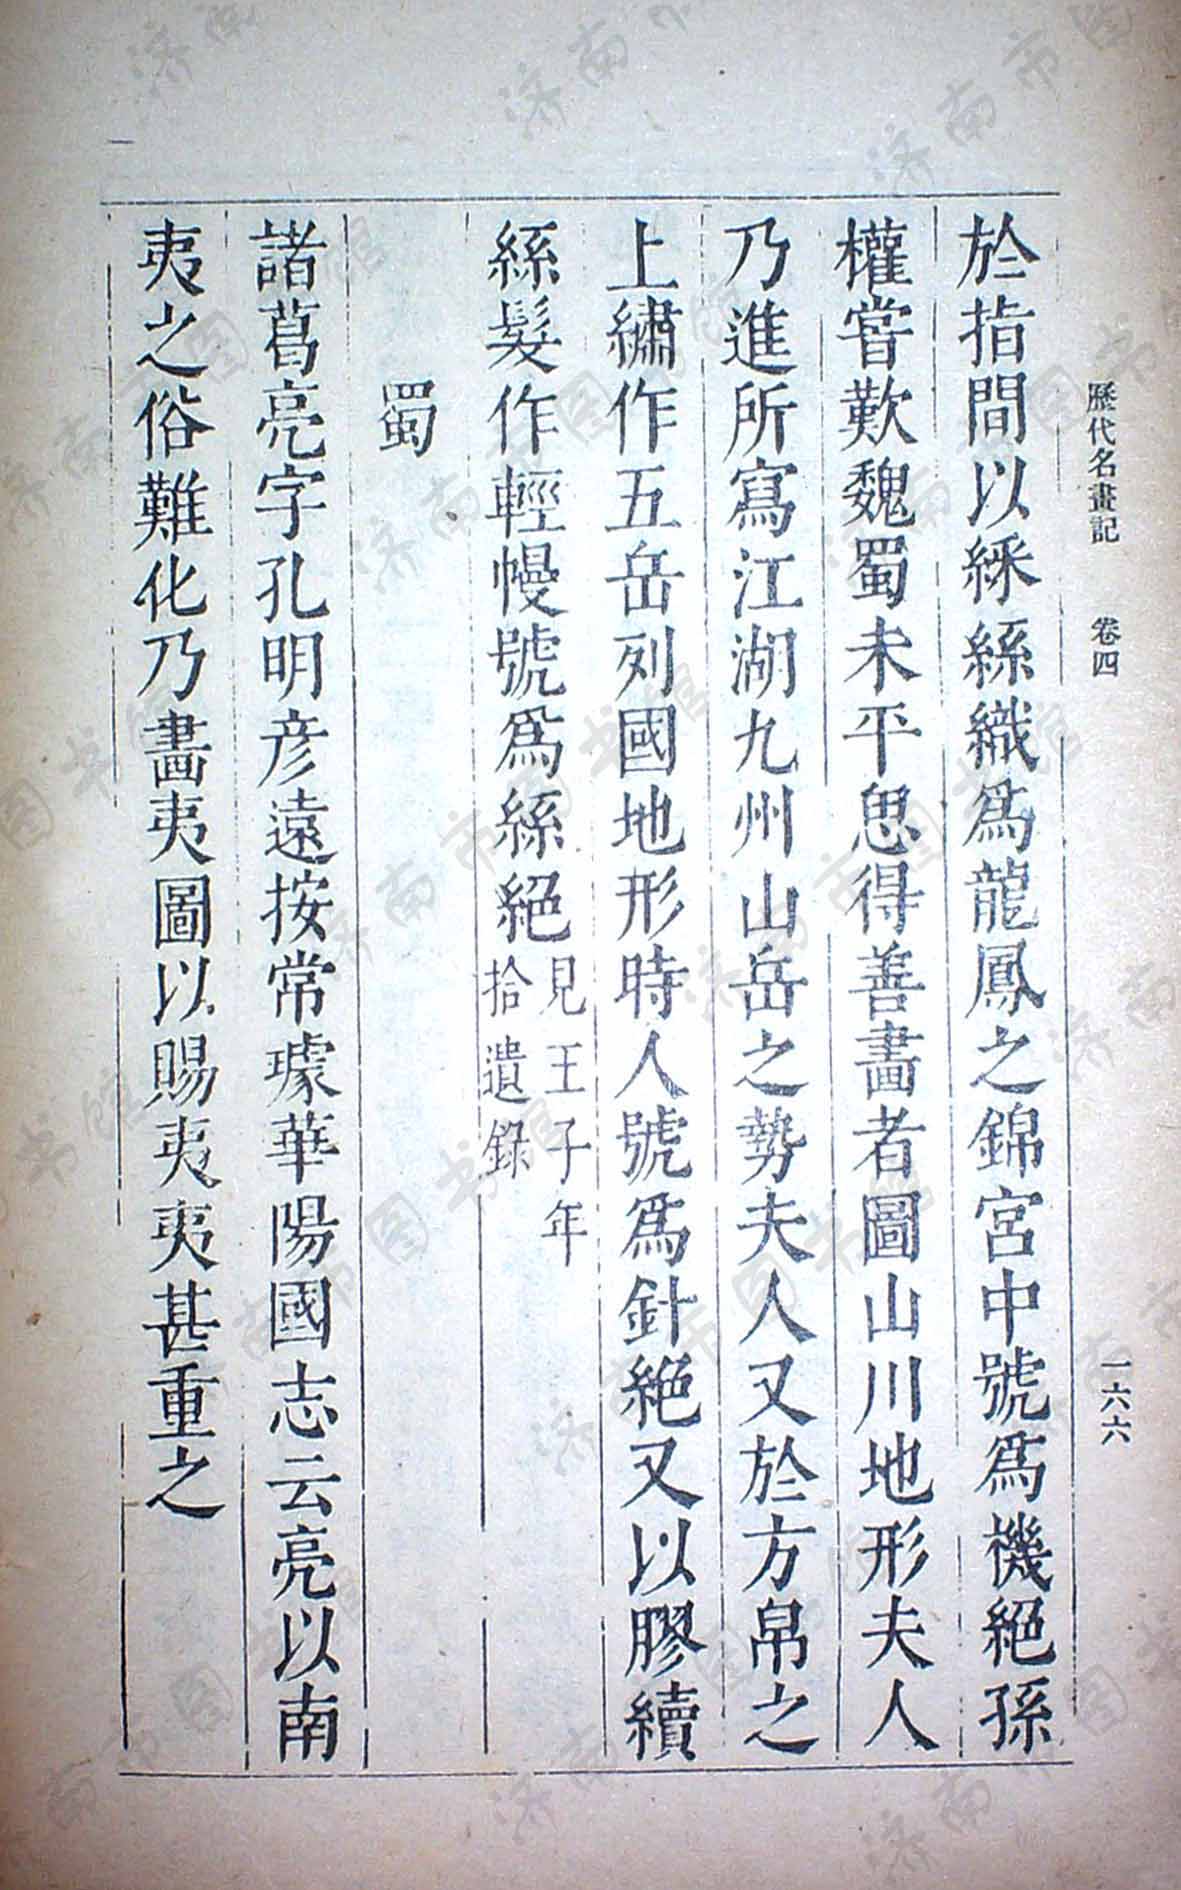 歷代名畫記 卷四 一六六
於指間以綵絲織爲龍鳳之錦宮中號爲機絕孫
權嘗歎魏蜀未平思得善畫者圖山川地形夫人
乃進所寫江湖九州山岳之勢夫人又於方帛之
上繡作五岳列國地形時人號爲針絕又以膠續
絲髮作輕幔號爲絲絕見王子年
拾遺錄
蜀
諸葛亮字孔明彥遠按常璩華陽國志云亮以南
夷之俗難化乃畫夷圖以賜夷夷甚重之
济南市图书馆